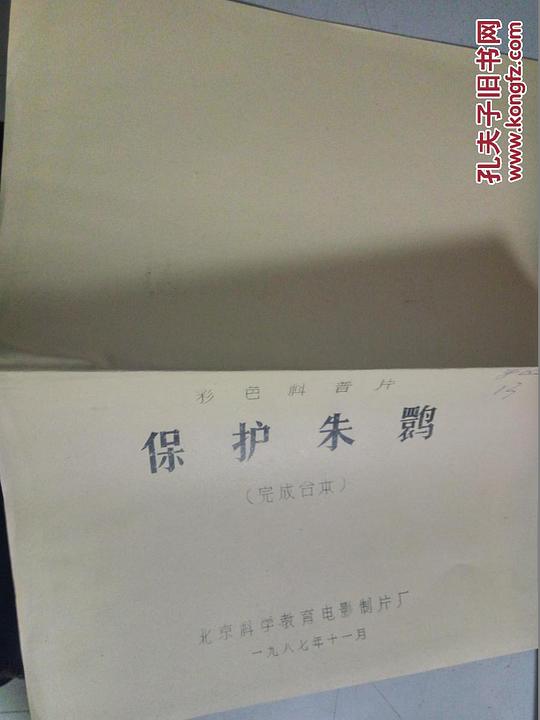 孔夫子旧书网
www.kongfz.com
彩色科普片
13
保护朱鹮
(完成台本)
北京科学教育电影制片厂
一九八七年十一月